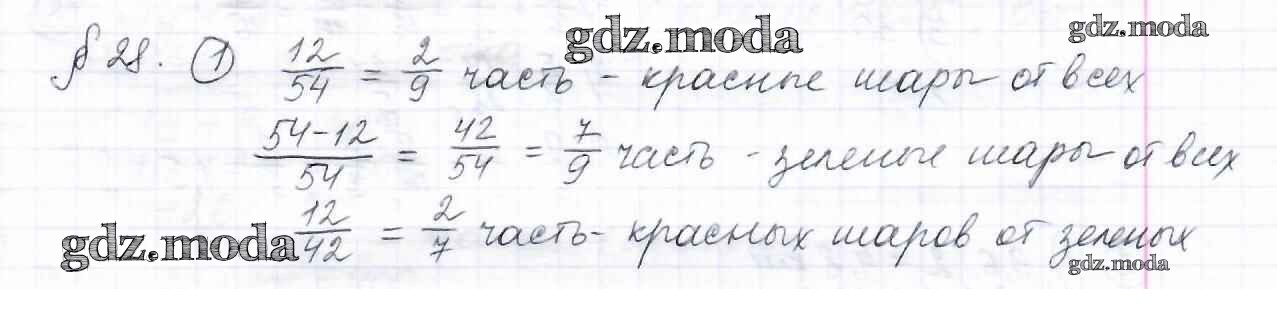 gdz.moda
gdz.moda
§ 28. ① 12/54 = 2/9 часть - красные шары от всех
54-12/54 = 42/54 = 7/9 часть - зеленые шары от всех
12/42 = 2/7 часть - красных шаров от зеленых
gdz.moda
gdz.moda